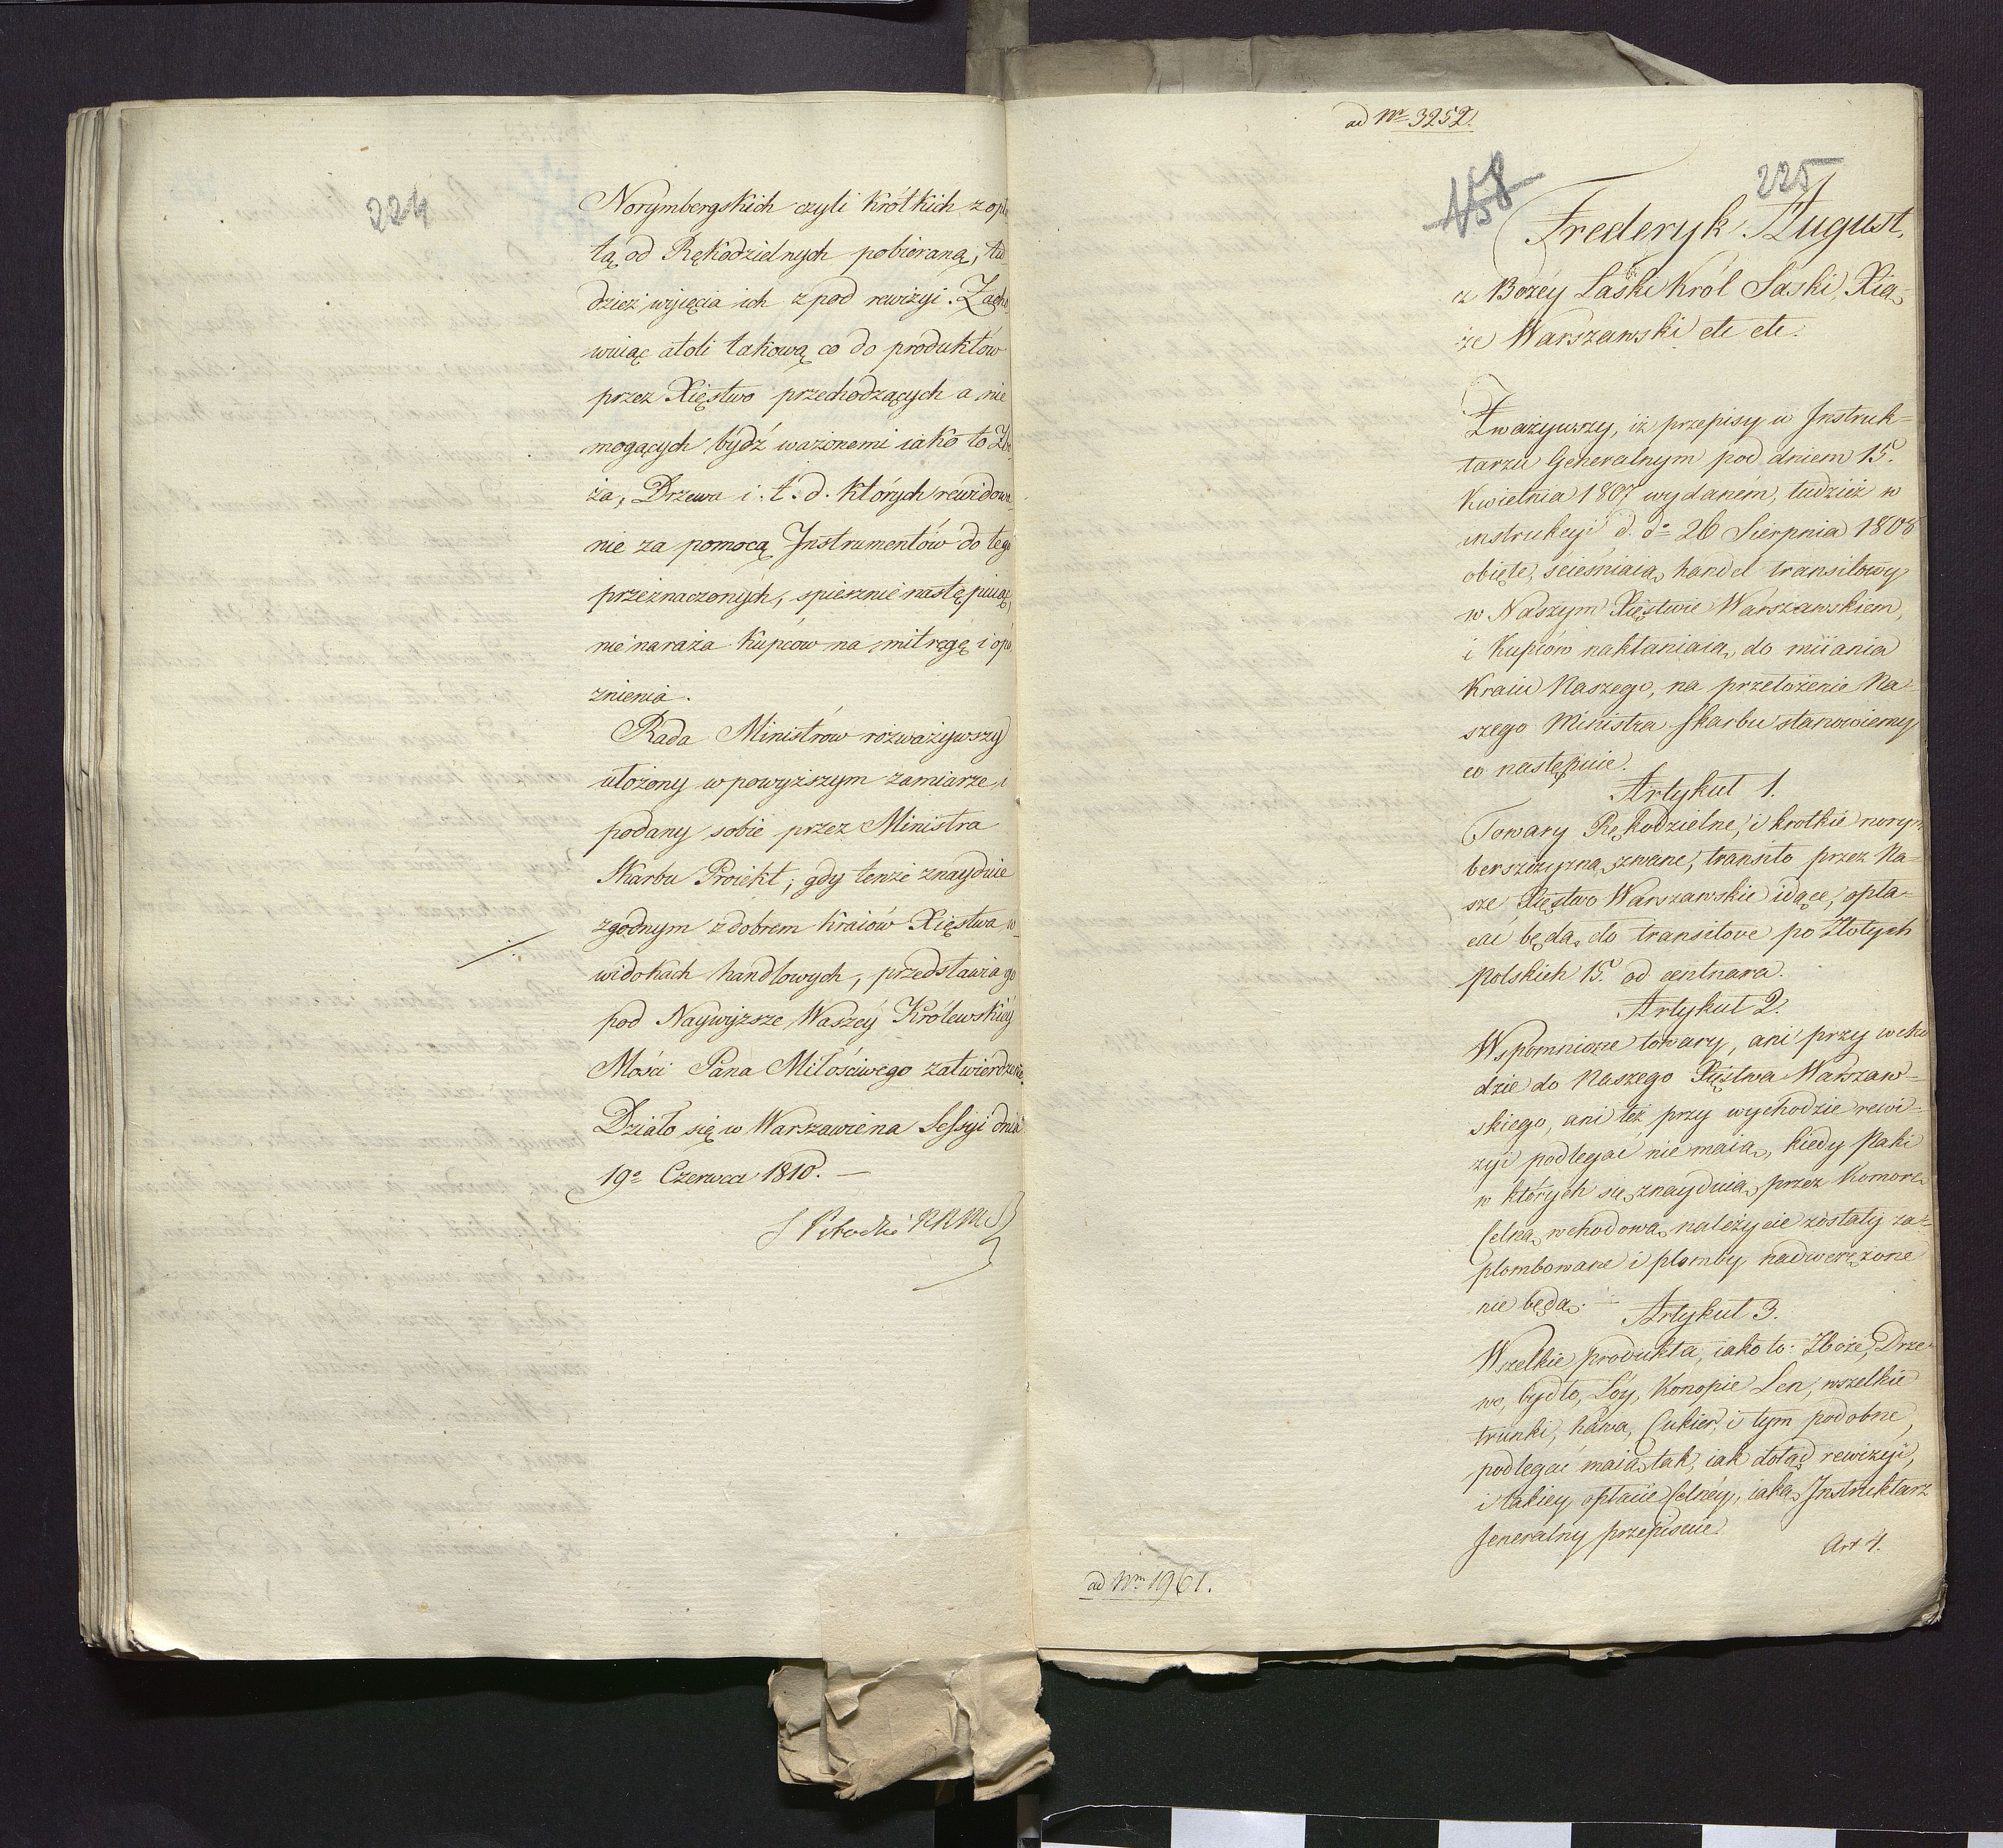 224
Norymbergskich czyli krótkich z opła
tą od Rękodzielnych pobieraną, tu
dzież wyięcia ich z pod rewizyi. Zacho
wuiąc atoli takową co do produktów
przez Xięstwo przechodzących a nie
mogących bydź ważonemi iako to Zbo
ża, Drzewa i. t. d. których rewidowa
nie za pomocą Instrumentów do tego
przeznaczonych, spiesznie następuiąc,
nie naraża kupców na mitręgę i opó
znienia.
Rada Ministrów rozważywszy
ułożony w powyższym zamiarze i
podany sobie przez Ministra
Skarbu Proiekt; gdy tenże znayduie
zgodnym z dobrem kraiów Xięstwa w
widokach handlowych, przedstawia go
pod Naywyższe Waszéy Królewskiéy
Mości Pana Miłościwego zatwierdzenie.
Działo się w Warszawie na Sessyi dnia
19º Czerwca 1810. —
ad Nrm 1961.
ad Nr 3252.
158
225
Frederyk August,
z Bożéy Łaski Król Saski, Xią-
że Warszawski etc etc.
Zważywszy, iż przepisy w Instruk-
tarzu Generalnym pod dniem 15.
Kwietnia 1807 wydaném, tudzież w
instrukcyi d. do 26 Sierpnia 1808
obięte, ścieśniaią handel transitowy
w Naszym Xięstwie Warszawskiem,
i Kupców nakłaniaią do miiania
Kraiu Naszego, na przełożenie Na-
szego Ministra skarbu stanowiemy
co następuie.
Artykuł 1.
Towary Rękodzielne, i krotkie norym
berszczyzną zwane, transito przez Na-
sze Xięstwo Warszawskie idące, opła-
cać będą cło transitove po Złotych
polskich 15. od centnara.
Artykuł 2.
Wspomnione towary, ani przy wcho
dzie do Naszego Xięstwa Warszaw-
skiego, ani też przy wychodzie rewi-
zyi podlegać nie maią, kiedy Paki
w których się znayduią przez Komorę
Celną wchodową należycie zostały za-
plombowane i plomby nadwerężone
nie będą.
Artykuł 3.
Wszelkie produkta, iako to: Zboże, Drze-
wo, bydło, Łóy, Konopie Len, wszelkie
trunki, kawa, Cukier, i tym podobne,
podlegać maią tak, iak dotąd rewizyi,
i takiey opłacie Celnéy, iaką Instruktarz
Jeneralny przepisuie.
Art 4.